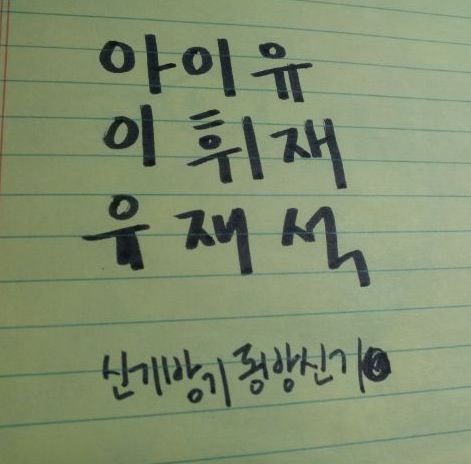 아이유
이휘재
유재석
신기방기 동방신기